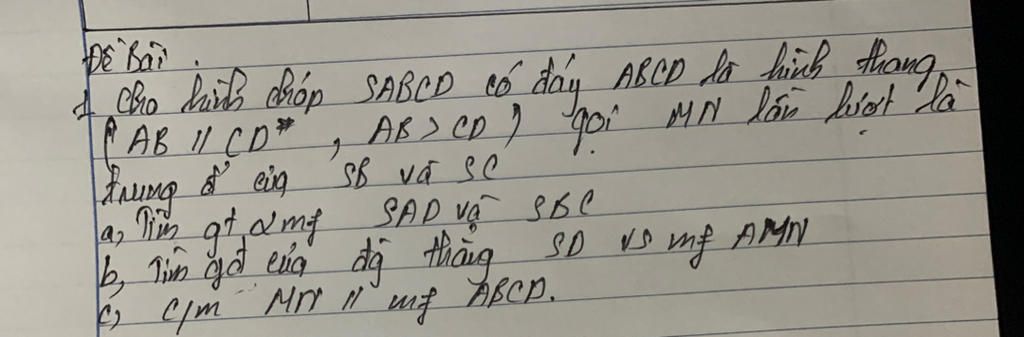 Đề Bài.
1 Cho hình chóp SABCD có đáy ABCD là hình thang
( AB // CD , AB > CD ) gọi MN lần lượt là
trung đ' của SB và SC
a, Tìm gt 2 mf SAD và SBC
b, Tìm gđ của đg thẳng SD vs mf AMN
c, c/m MN // mf ABCD.